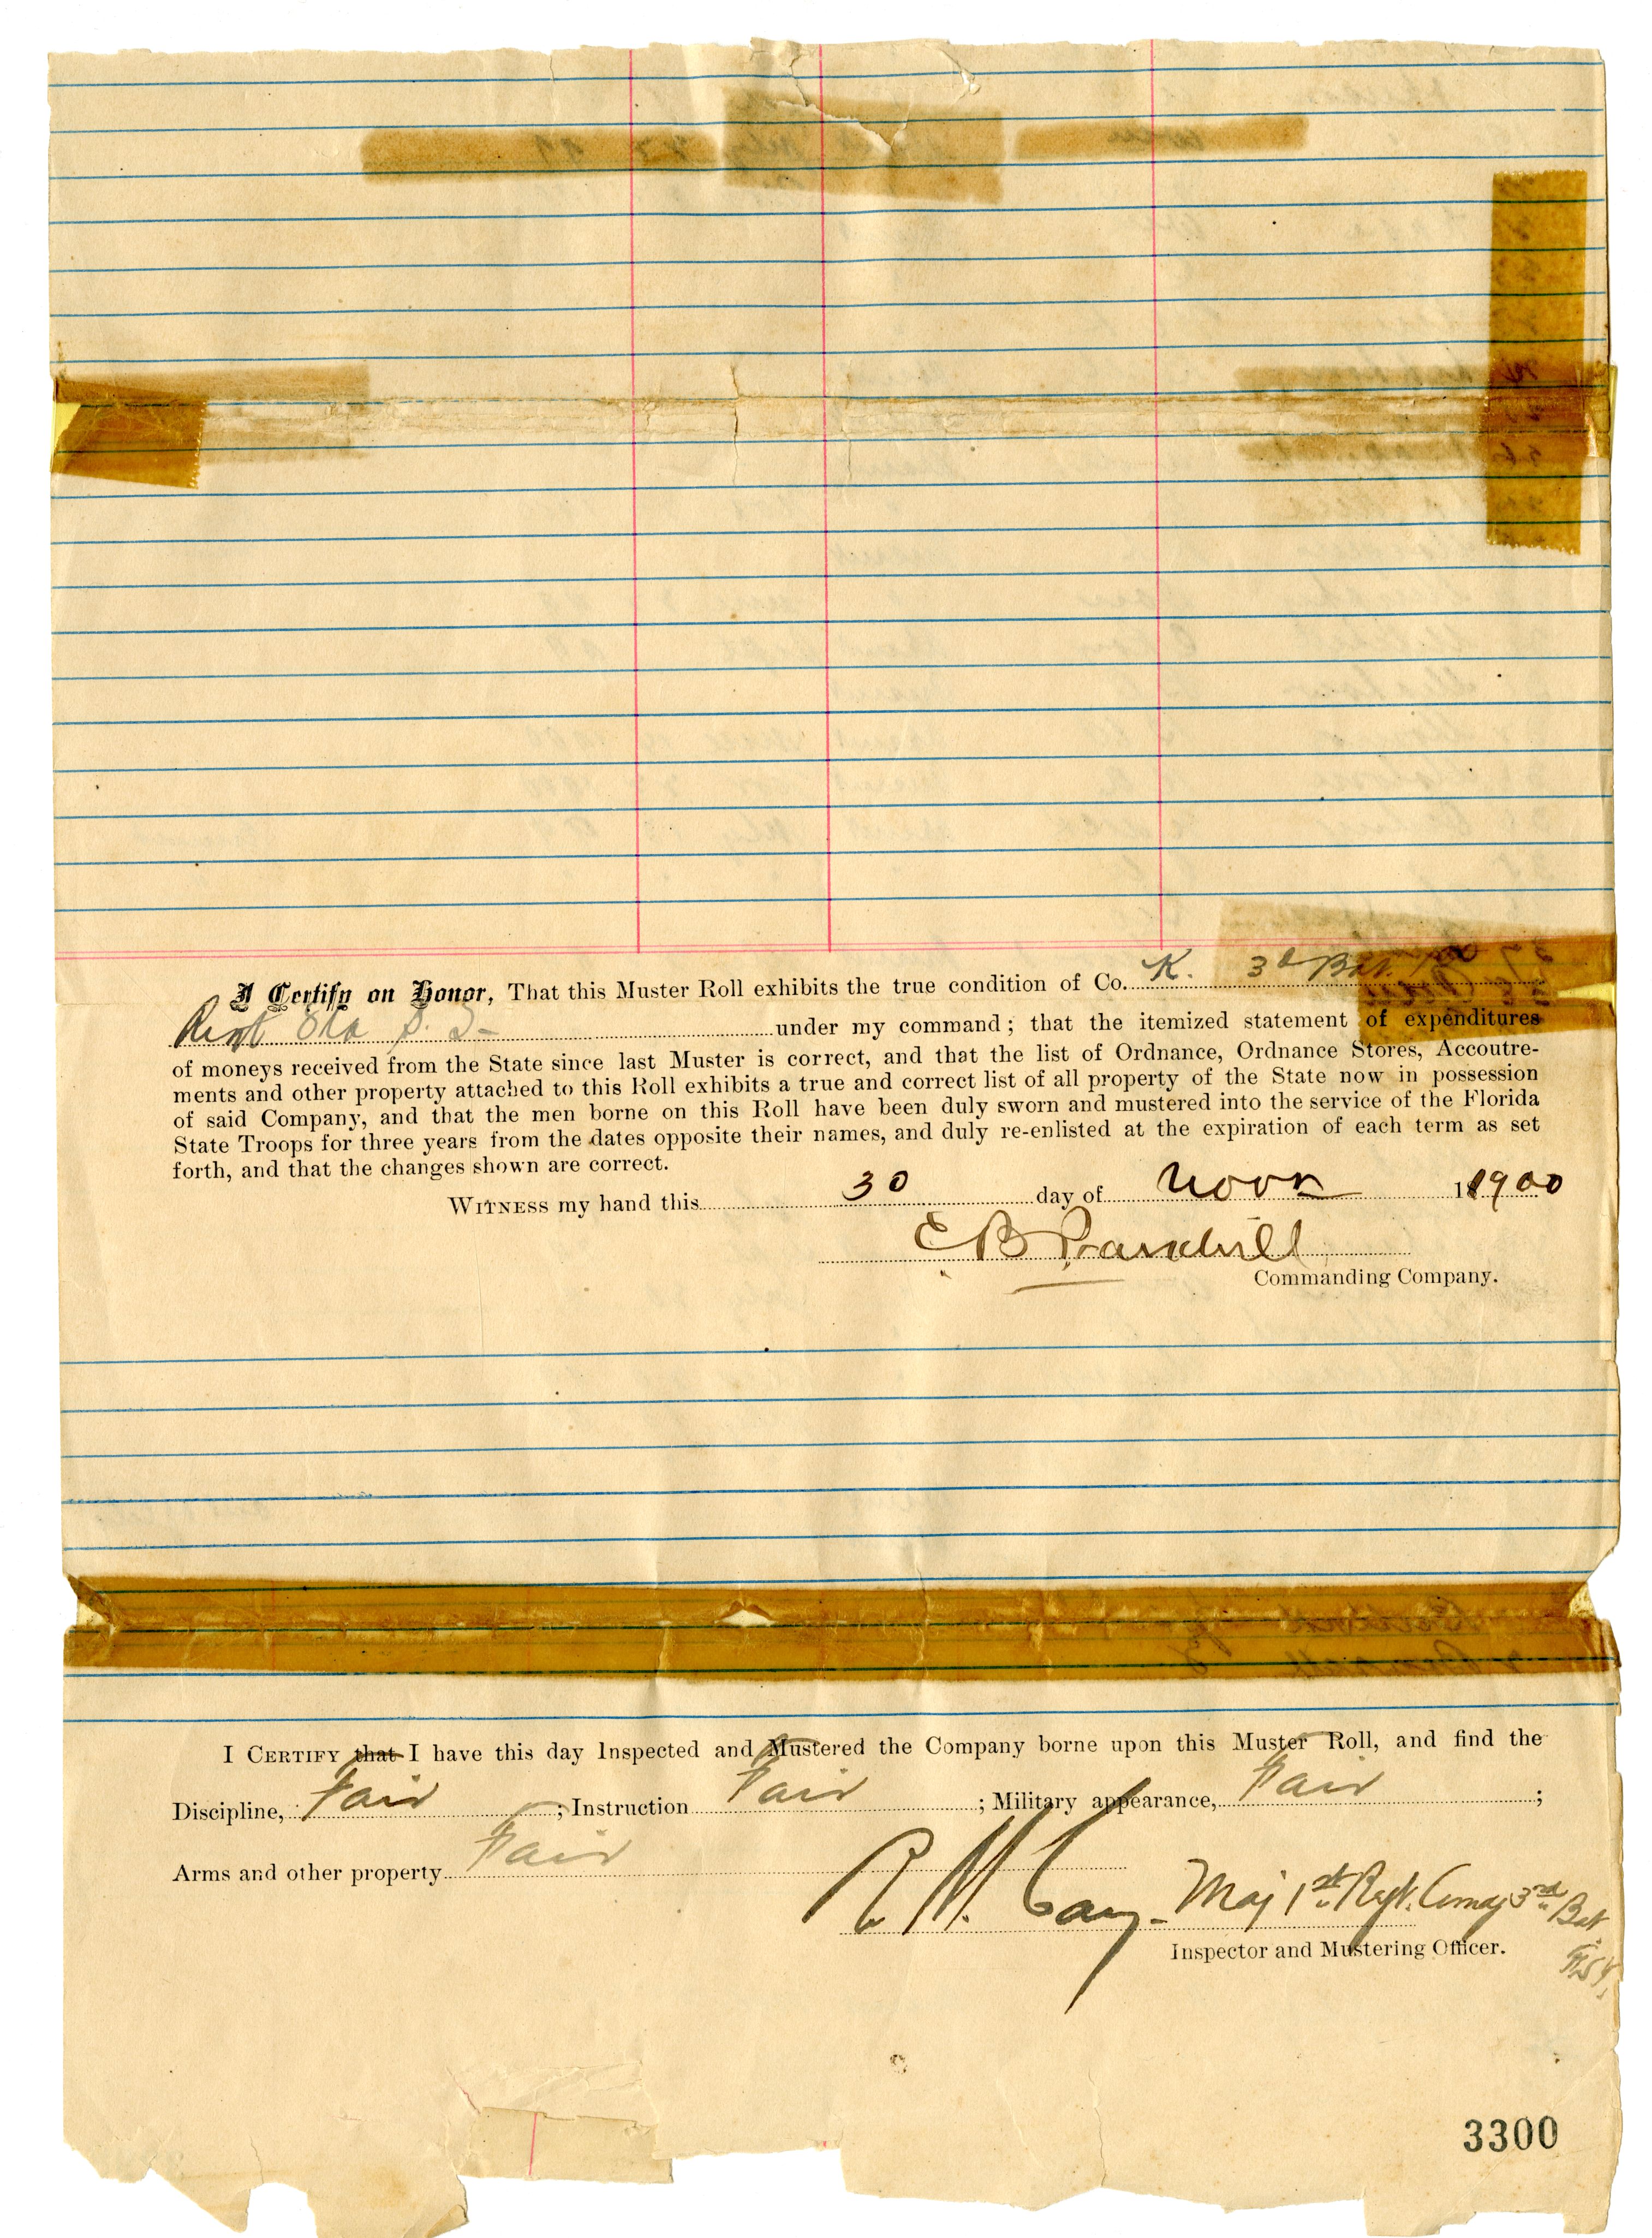 I Certify on Honor, That this Muster Roll exhibits the true condition of Co. K. 3d Bat. 1st
Regt Fla S. T. under my command; that the itemized statement of expenditures
of moneys received from the State since last Muster is correct, and that the list of Ordnance, Ordnance Stores, Accoutre-
ments and other property attached to this Roll exhibits a true and correct list of all property of the State now in possession
of said Company, and that the men borne on this Roll have been duly sworn and mustered into the service of the Florida
State Troops for three years from the dates opposite their names, and duly re-enlisted at the expiration of each term as set
forth, and that the changes shown are correct.
WITNESS my hand this 30 day of 1900
E B
Commanding Company.
I CERTIFY that I have this day Inspected and Mustered the Company borne upon this Muster Roll, and find the
Discipline, Fair ; Instruction Fair ; Military appearance, Fair ;
Arms and other property Fair
R. M. Cary - Maj 1st Regt. Comdg 3rd Bat
Inspector and Mustering Officer.
3300